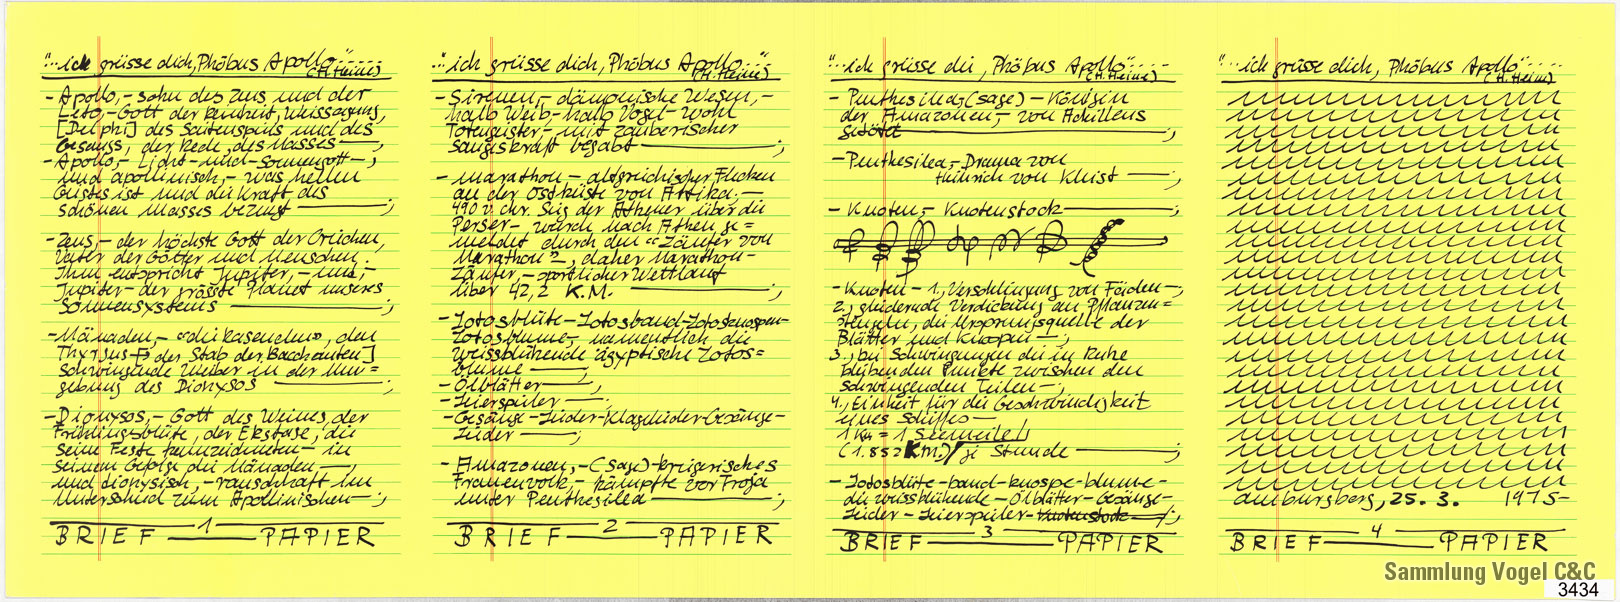 "...ich grüsse dich, Phöbus Apollo"......
(H. Heine)
- Apollo, - sohn des Zeus und der
Leto, - Gott der Reinheit, Weissagung,
[Delphi] des Saitenspiels und des
Gesangs, der Rede, des Masses ———,
- Apollo, - Licht - und - Sonnengott —,
und apollinisch, - was hellen
Geistes ist und die Kraft des
schönen Masses bezeugt ———;
- Zeus, - der höchste Gott der Griechen,
Vater der Götter und Menschen.
Ihm entspricht Jupiter, - und, -
Jupiter - der grösste Planet unseres
Sonnensystems ———;
- Mänaden, - "die Rasenden", den
Thyrsus - [der Stab der Bacchanten]
schwingende Weiber in der Um =
gebung des Dionysos ———;
- Dionysos, - Gott des Weines, der
Frühlingsblüte, der Ekstase, die
seine Feste kennzeichneten - in
seinem Gefolge die Mänaden —,
und dionysisch, - rauschhaft im
Unterschied zum Apollinischen —;
BRIEF — 1 — PAPIER
"...ich grüsse dich, Phöbus Apollo"
(H. Heine)
- Sirenen, - dämonische Wesen, -
halb Weib - halb Vogel - wohl
Totengeister, - mit zauberischer
Sangeskraft begabt ———;
- Marathon - altgriechischer Flecken
an der Ostküste von Attika; —
490 v. Chr. Sieg der Athener über die
Perser - wurde nach Athen ge =
meldet durch den "Läufer von
Marathon" -, daher Marathon-
Läufer, - sportlicher Wettlauf
über 42,2 K.M. ———;
- Lotosblüte - Lotosband - Lotosknospen -
Lotosblume, - namentlich die
weissblühende ägyptische Lotos =
blume ———;
- Ölblätter ———;
- Leierspieler ———;
- Gesänge - Lieder - Klagelieder - Gesänge -
Lieder ———;
- Amazonen, - (Sage) - kriegerisches
Frauenvolk, - kämpfte vor Troja
unter Penthesilea ———;
BRIEF — 2 — PAPIER
"...ich grüsse die, Phöbus Apollo".....
(H. Heine)
- Penthesilea, (Sage) - Königin
der Amazonen, - von Achilleus
getötet ———;
- Penthesilea, - Drama von
Heinrich von Kleist ———;
- Knoten, - Knotenstock ———;
- Knoten - 1, Verschlingung von Fäden —;
2., gliedernde Verdickung an Pflanzen =
stengeln, die Ursprungsquelle der
Blätter und Knospen —;
3., bei Schwingungen die in Ruhe
bleibenden Punkte zwischen den
schwingenden Teilen —;
4., Einheit für die Geschwindigkeit
eines Schiffes —
1 Kn = 1 Seemeile/
(1.852 Km.)/je Stunde ———;
- Lotosblüte - band - knospe - blume -
die weissblühende - Ölblätter - Gesänge -
Lieder - Leierspieler - Knotenstock —;
BRIEF — 3 — PAPIER
"...ich grüsse dich, Phöbus Apollo".....
(H. Heine)
25. 3. 1975-
BRIEF — 4 — PAPIER
Sammlung Vogel C&C
3434